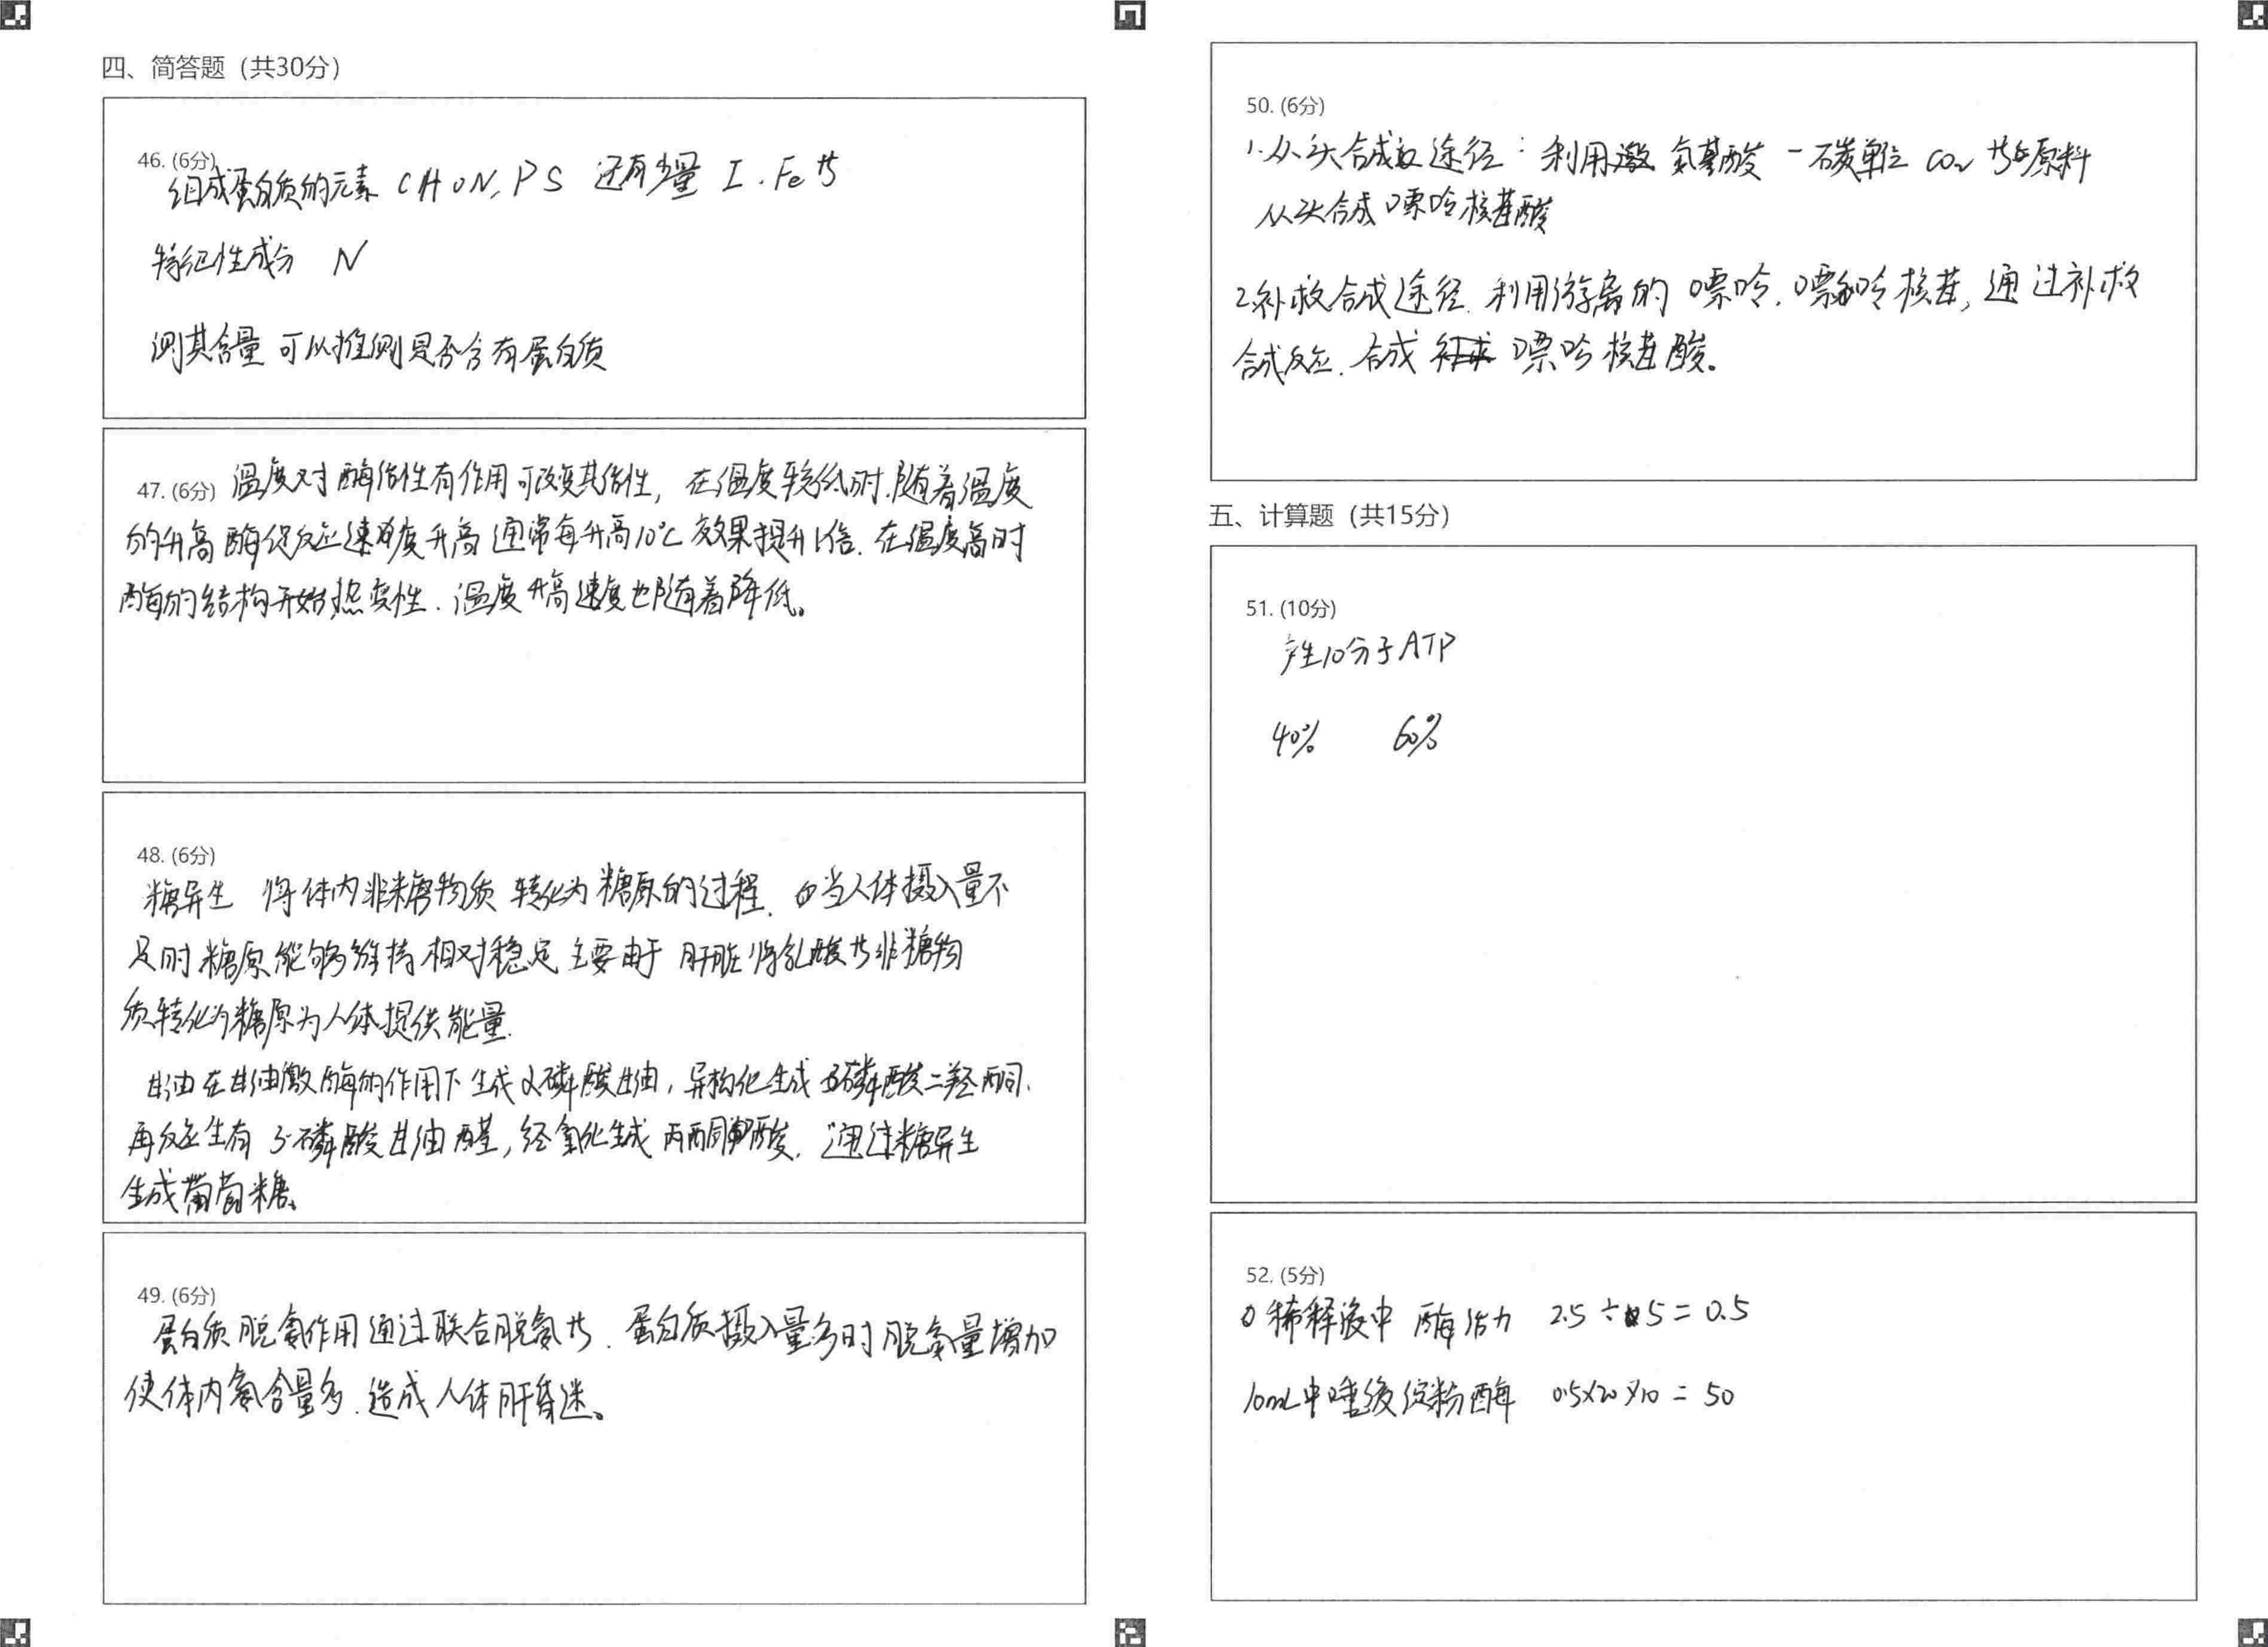 四、简答题（共30分）
46. (6分)
组成蛋白质的元素 C H O N, P S 还有少量 I . Fe 等
特征性成分 N
测其含量 可以推测是否含有蛋白质
47. (6分) 温度对酶活性有作用可改变其活性, 在温度较低时.随着温度
的升高 酶促反应速度升高 通常每升高10℃ 效果提升1倍. 在温度高时
酶的结构开始热变性. 温度升高速度也随着降低。
48. (6分)
糖异生 将体内非糖物质 转化为糖原的过程. 当人体摄入量不
足时 糖原能够维持相对稳定 主要由于 肝脏将乳酸等非糖物
质转化为糖原为人体提供能量.
甘油在甘油激酶的作用下生成α磷酸甘油, 异构化生成 磷酸二羟丙酮.
再反应生有 3-磷酸甘油醛, 经氧化生成 丙酮酸. 通过糖异生
生成葡萄糖。
49. (6分)
蛋白质脱氨作用通过联合脱氨等. 蛋白质摄入量多时脱氨量增加
使体内氨含量多. 造成人体肝昏迷。
50. (6分)
1.从头合成途径: 利用 氨基酸 一碳单位 CO₂ 等原料
从头合成嘌呤核苷酸
2.补救合成途径. 利用游离的 嘌呤. 嘌呤核苷, 通过补救
合成反应. 合成 嘌呤核苷酸。
五、计算题（共15分）
51. (10分)
产生10分子ATP
40% 60%
52. (5分)
稀释液中 酶活力 2.5÷5=0.5
10mL中唾液淀粉酶 0.5×20×10=50